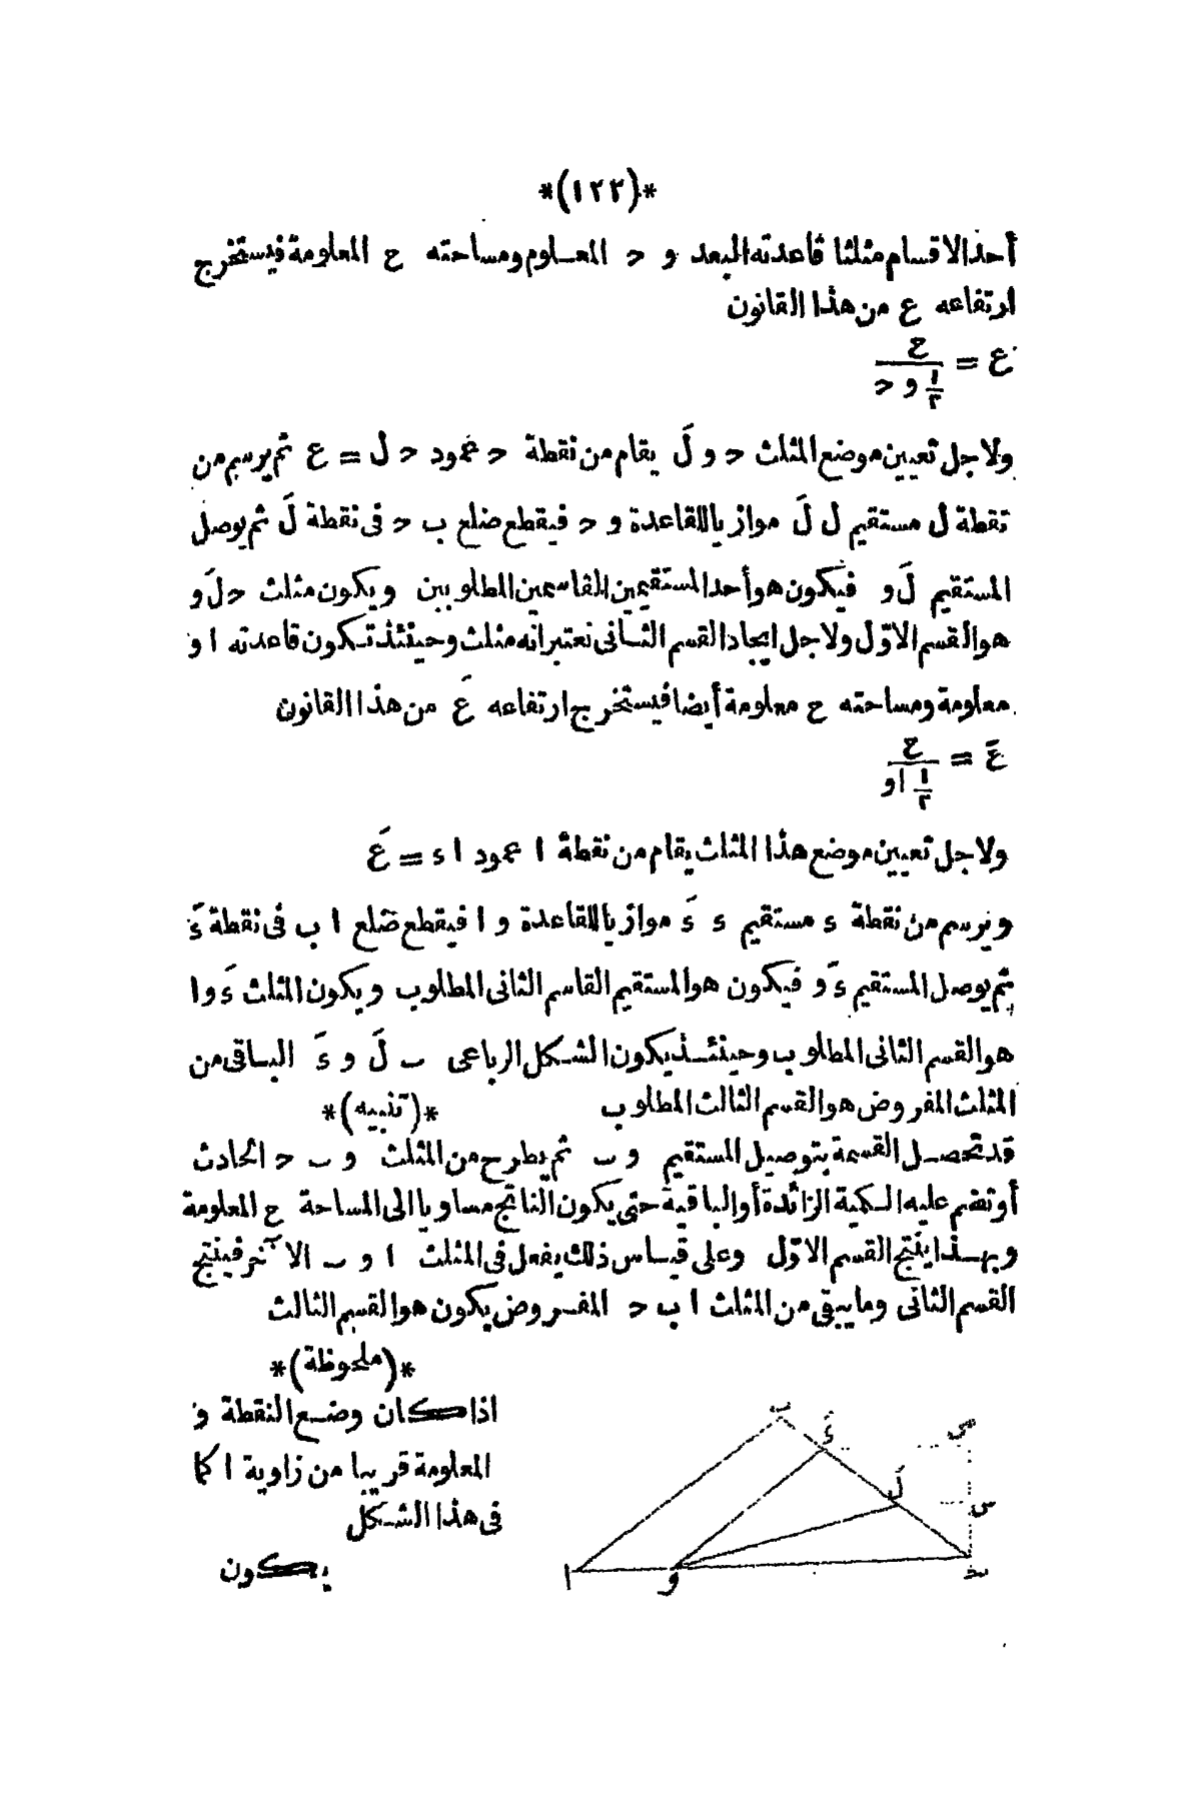 *(١٢٢)*
أحد الاقسام مثلثا قاعدته البعد و ح المعلوم ومساحته ح المعلومة فيستخرج
ارتفاعه ع من هذا القانون
ع = ح / ١/٢ و ح
ولاجل تعيين موضع المثلث ح و لَ يقام من نقطة ح عمود ح ل = ع ثم يرسم من
نقطة ل مستقيم ل لَ موازيا للقاعدة و ح فيقطع ضلع ب ح فى نقطة لَ ثم يوصل
المستقيم لَ و فيكون هو أحد المستقيمين القاسمين المطلوبين ويكون مثلث ح لَ و
هو القسم الاوّل ولاجل ايجاد القسم الثانى نعتبر انه مثلث وحينئذ تكون قاعدته ا و
معلومة ومساحته ح معلومة أيضا فيستخرج ارتفاعه عَ من هذا القانون
عَ = ح / ١/٢ ا و
ولاجل تعيين موضع هذا المثلث يقام من نقطة ا عمود ا ء = عَ
ويرسم من نقطة ء مستقيم ء ءَ موازيا للقاعدة و ا فيقطع ضلع ا ب فى نقطة ءَ
ثم يوصل المستقيم ءَ و فيكون هو المستقيم القاسم الثانى المطلوب ويكون المثلث ءَ و ا
هو القسم الثانى المطلوب وحينئذ يكون الشكل الرباعى ب لَ و ءَ الباقى من
المثلث المفروض هو القسم الثالث المطلوب *(تنبيه)*
قد تحصل القسمة بتوصيل المستقيم و ب ثم يطرح من المثلث و ب ح الحادث
أو تضم عليه الكمية الزائدة أو الباقية حتى يكون الناتج مساويا الى المساحة ح المعلومة
وبهذا ينتج القسم الاوّل وعلى قياس ذلك يفعل فى المثلث ا و ب الآخر فينتج
القسم الثانى وما يبقى من المثلث ا ب ح المفروض يكون هو القسم الثالث
*(ملحوظة)*
اذا كان وضع النقطة و
المعلومة قريبا من زاوية ا كما
فى هذا الشكل
يكون
ب
ءَ
ص
لَ
س
ح
و
ا